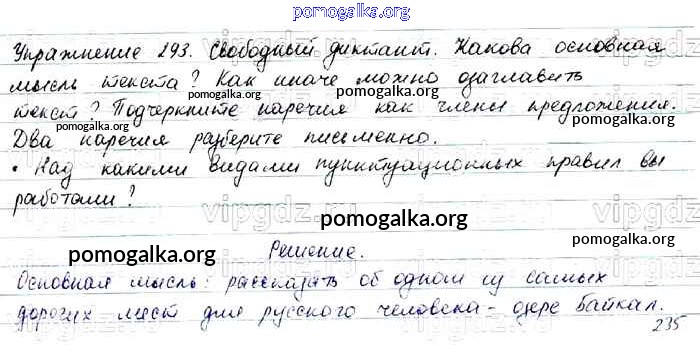 pomogalka.org
Упражнение 293. Свободный диктант. Какова основная
pomogalka.org
мысль текста? Как иначе можно озаглавить
pomogalka.org
текст? Подчеркните наречия как члены предложения.
pomogalka.org
pomogalka.org
Два наречия разберите письменно.
• Над какими видами пунктуационных правил вы
работали?
vipgdz.ru
pomogalka.org
pomogalka.org
Решение.
pomogalka.org
Основная мысль: рассказать об одном из самых
дорогих мест для русского человека - озере Байкал.
235